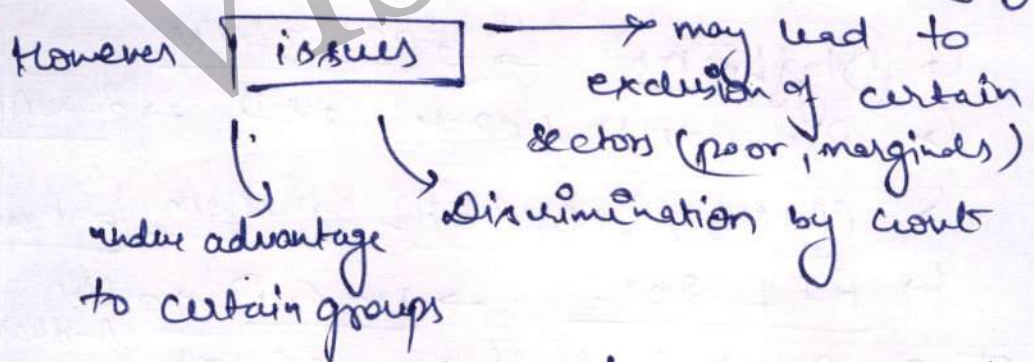 However issues → may lead to
exclusion of certain
sectors (poor, marginals)
Discrimination by Govt
undue advantage
to certain groups